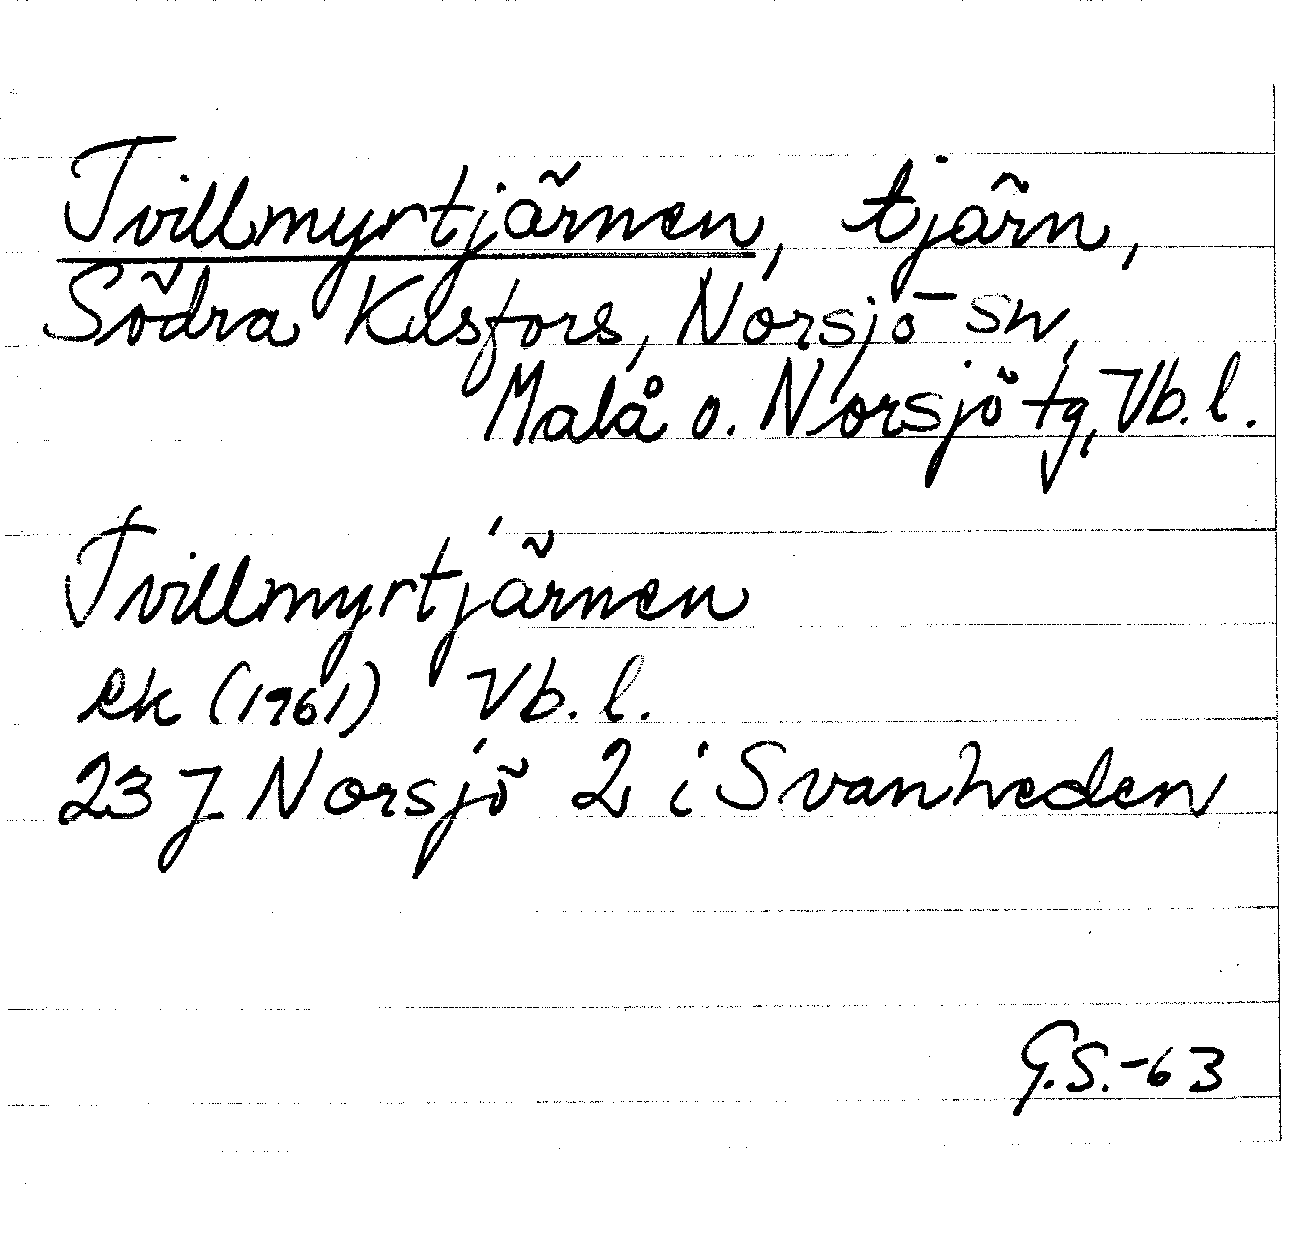 Tvillmyrtjärnen, tjärn,
Södra Kusfors, Norsjö sn,
Malå o. Norsjö tg, Vb. l.
Tvillmyrtjärnen
ek (1961) Vb. l.
23 J Norsjö 2 i Svanheden
G.S.-63